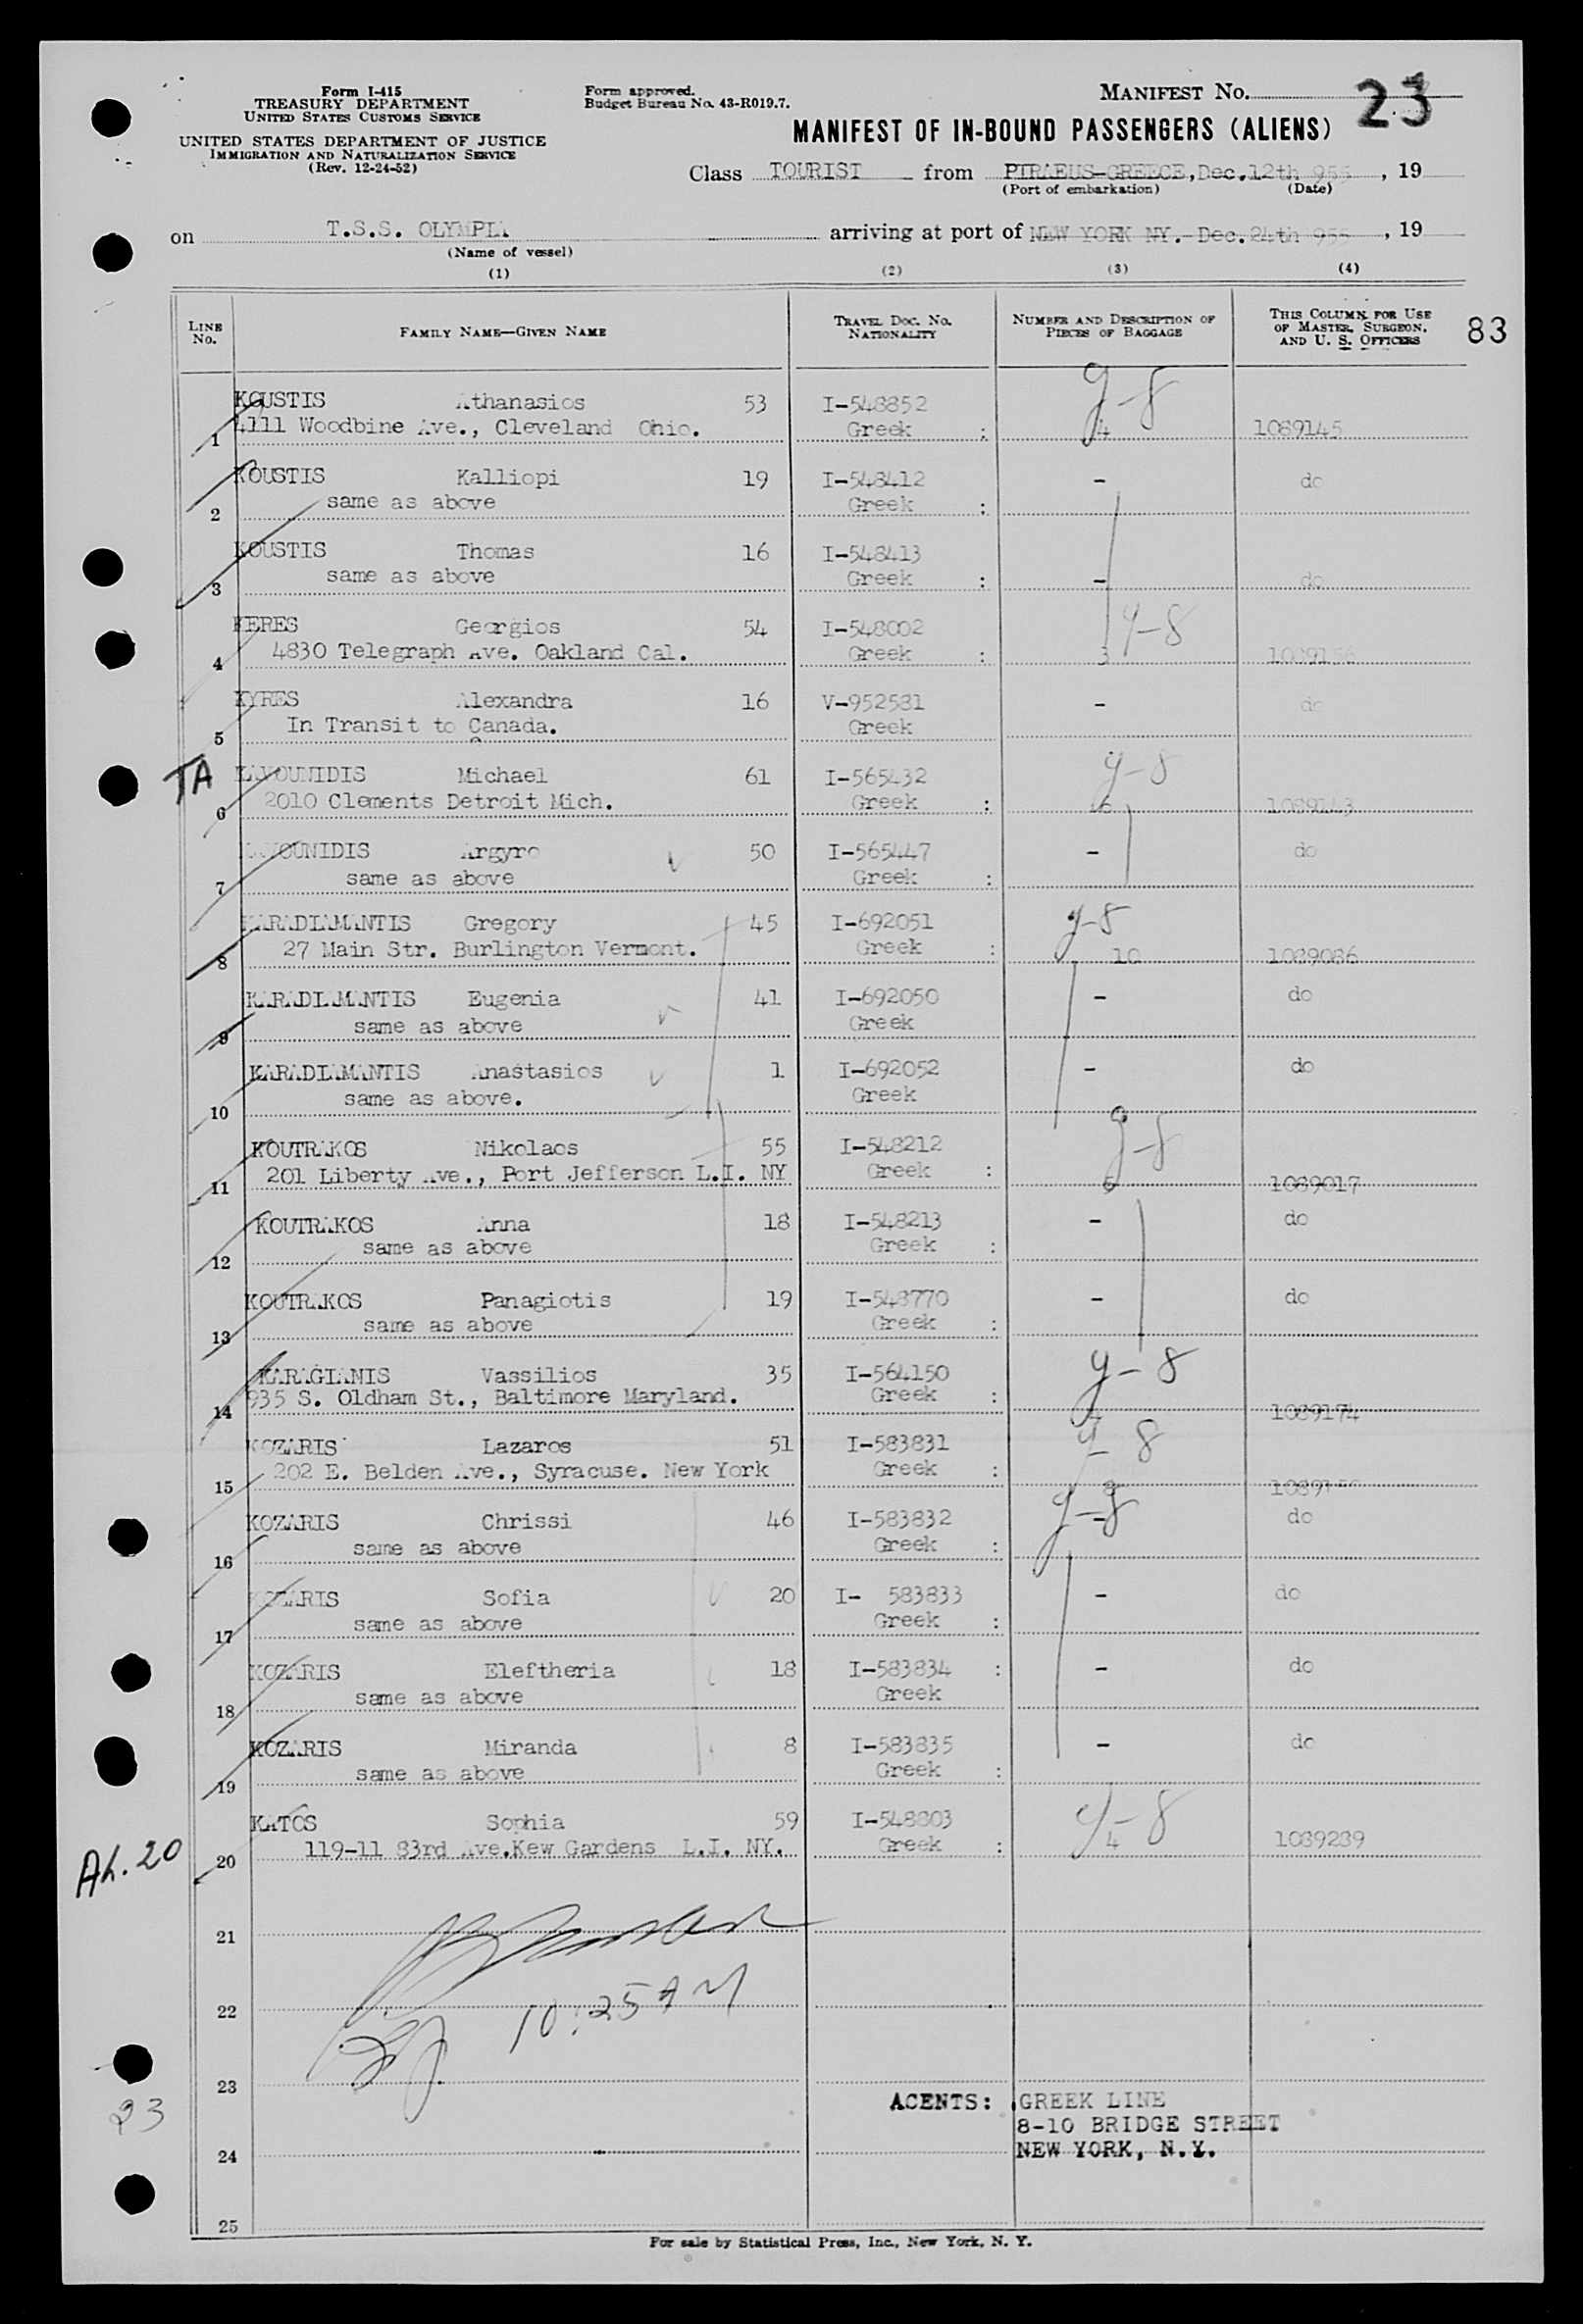 Form I-415
TREASURY DEPARTMENT
UNITED STATES CUSTOMS SERVICE
UNITED STATES DEPARTMENT OF JUSTICE
IMMIGRATION AND NATURALIZATION SERVICE
(Rev. 12-24-52)
Form approved.
Budget Bureau No. 43-R019.7.
MANIFEST No. 23
MANIFEST OF IN-BOUND PASSENGERS (ALIENS)
Class TOURIST from PIRAEUS-GREECE, Dec. 12th 955, 19
(Port of embarkation) (Date)
on T.S.S. OLYMPIA arriving at port of NEW YORK NY.-Dec. 24th 955, 19
(Name of vessel)
(1) (2) (3) (4)
LINE No. FAMILY NAME—GIVEN NAME TRAVEL DOC. No. NATIONALITY NUMBER AND DESCRIPTION OF PIECES OF BAGGAGE THIS COLUMN FOR USE OF MASTER, SURGEON, AND U. S. OFFICERS
83
KOUSTIS Athanasios 53 I-548852 y-8
1 4111 Woodbine Ave., Cleveland Ohio. Greek : 4 1089145
KOUSTIS Kalliopi 19 I-548412 - do
2 same as above Greek :
KOUSTIS Thomas 16 I-548413
3 same as above Greek : - do
KERES Georgios 54 I-548002 y-8
4 4830 Telegraph Ave. Oakland Cal. Greek : 3
KYRES Alexandra 16 V-952581 - do
5 In Transit to Canada. Greek
TA Michael 61 I-565432 y-8
6 2010 Clements Detroit Mich. Greek : 6 1089143
Argyro 50 I-565447 - do
7 same as above Greek :
KARADIAMANTIS Gregory 45 I-692051 y-8
8 27 Main Str. Burlington Vermont. Greek : 10 1089086
KARADIAMANTIS Eugenia 41 I-692050 - do
9 same as above Greek
KARADIAMANTIS Anastasios 1 I-692052 - do
10 same as above. Greek
KOUTRAKOS Nikolaos 55 I-548212 y-8
11 201 Liberty Ave., Port Jefferson L.I. NY Greek : 6 1089017
KOUTRAKOS Anna 18 I-548213 - do
12 same as above Greek :
KOUTRAKOS Panagiotis 19 I-548770 - do
13 same as above Greek :
KARAGIANIS Vassilios 35 I-564150 y-8
14 935 S. Oldham St., Baltimore Maryland. Greek : 1089174
KOZARIS Lazaros 51 I-583831 y-8
15 202 E. Belden Ave., Syracuse. New York Greek : 8
KOZARIS Chrissi 46 I-583832 y-8 - do
16 same as above Greek :
KOZARIS Sofia 20 I- 583833 - do
17 same as above Greek :
KOZARIS Eleftheria 18 I-583834 : - do
18 same as above Greek
KOZARIS Miranda 8 I-583835 - do
19 same as above Greek :
KATOS Sophia 59 I-548803 y-8
AL. 20
20 119-11 83rd Ave. Kew Gardens L.I. NY. Greek : 4 1089289
21
22 10:25 AM
23
23
ACENTS: GREEK LINE
8-10 BRIDGE STREET
24 NEW YORK, N.Y.
25
For sale by Statistical Press, Inc., New York, N. Y.